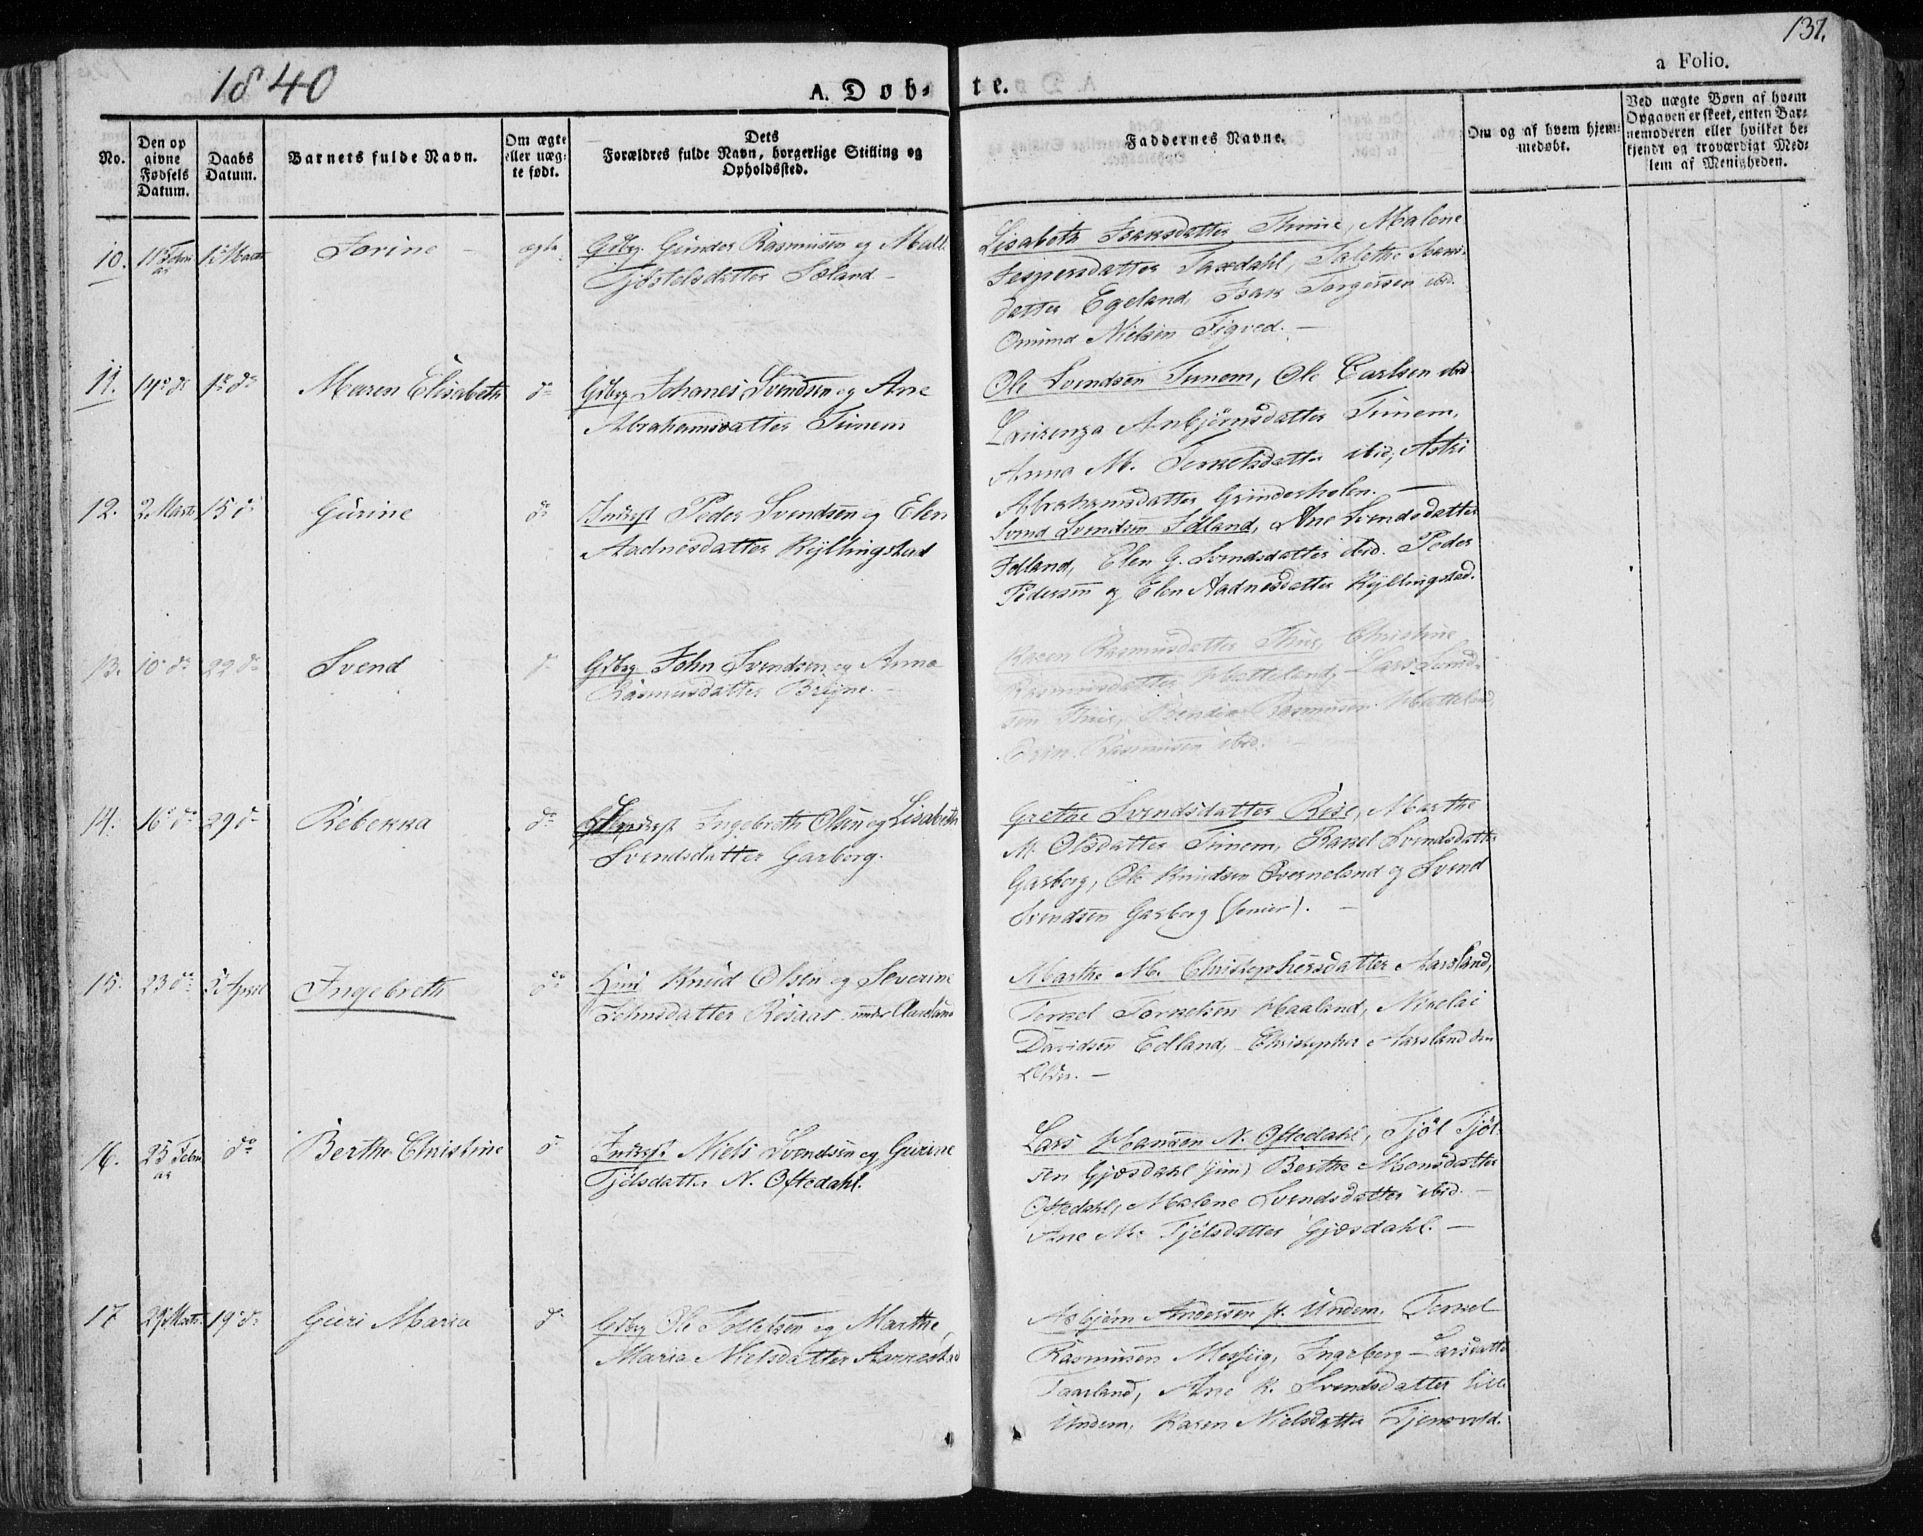 137.
a Folio.
1840
A. Døb- te.
No.
Den op
givne
Fødsels
Datum.
Daabs
Datum.
Barnets fulde Navn.
Om ægte
eller uæg-
te født.
Dets
Forældres fulde Navn, borgerlige Stilling og
Opholdssted.
Faddernes Navne.
Om og af hvem hjem-
medøbt.
Ved uægte Børn af hvem
Opgaven er skeet, enten Bar-
nemoderen eller hvilket be-
kjendt og troværdigt Med-
lem af Menigheden.
10.
1te Marts
Torine
ægte
Gdbrg Gunder Rasmussen og
Tjøstelsdatter Sæland
Lisabeth Isaksdatter Thime, Malene
Jespersdatter Taxdahl, Talethe
datter Egeland, Isak Torgersen ibid.
Omund Nielsen Tigred.
11.
14de ds
1te do
Maren Elisabeth
do
Gdbrg Johanes Svendsen og Ane
Abrahamsdatter Tunem
Ole Svendsen Tunem, Ole Carlsen ibid
Laurenza Anbjørnsdatter Tunem,
Anna M. Torkelsdatter ibid, Astri
Abrahamsdatter
12.
2 Marts
15 do
Gurine
do
Indrst Peder Svendsen og Elen
Aadnesdatter Kyllingstad
Svend Svendsen Edland, Ane Svendsdatter
Edland, Elen G. Svendsdatter ibid. Peder
Pedersen og Elen Aadnesdatter Kyllingstad.
13.
10 do
22 do
Svend
do
Gdbrg John Svendsen og Anna
Rasmusdatter Bryne.
Karen Rasmusdatter Thue, Christine
Rasmusdatter Hatteland, Lars Svend-
sen Thue, Rasmussen Hatteland,
Rasmussen ibid.
14.
16 do
29 do
Rebekka
do
Indrst Ingebreth Olsen og Lisabeth
Svendsdatter Garborg.
Grethe Svendsdatter Rise, Marthe
M. Olsdatter Tunem, Rakel Svendsdatter
Garborg, Ole Knudsen Qverneland og Svend
Svendsen Garborg (senior).
15.
23 do
5 April
Ingebreth
do
Huusm Knud Olsen og Severine
Johnsdatter Rosaas under Aarsland
Marthe M. Christophersdatter Aarsland,
Torkel Torkelsen Haaland, Nikolai
Davidsen Edland, Christopher Aarsland den
Eldre.
16.
25 Febru
ar
do
Berthe Christine
do
Indrst Niels Svendsen og Gurine
Tjølsdatter N. Oftedahl.
Lars Hansen N. Oftedahl, Tjøl Tjøl-
sen Gjesdahl (jun) Berthe Monsdatter
Oftedahl, Malene Svendsdatter ibid.
Ane M. Tjølsdatter Gjesdahl.
17
29 Marts
19 do
Guri Maria
do
Gdbrg Ole Tollefsen og Marthe
Maria Nielsdatter Aarrestad
Asbjørn Andersen st. Undem. Torkel
Rasmussen Ingeborg Larsdatter
Taarland, Ane K. Svendsdatter Lille
Undem, Karen Nielsdatter Tjensvold.